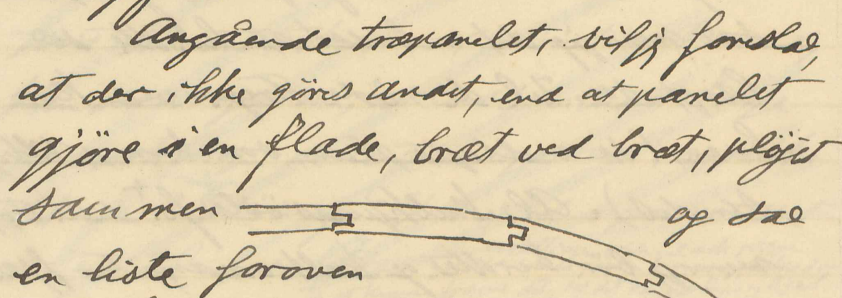 Angående træpanelet, vil jeg foreslae,
at der ikke göres andet, end at panelet
gjöre i en flade, bræt ved bræt, plöjet
sammen og sae
en liste foroven